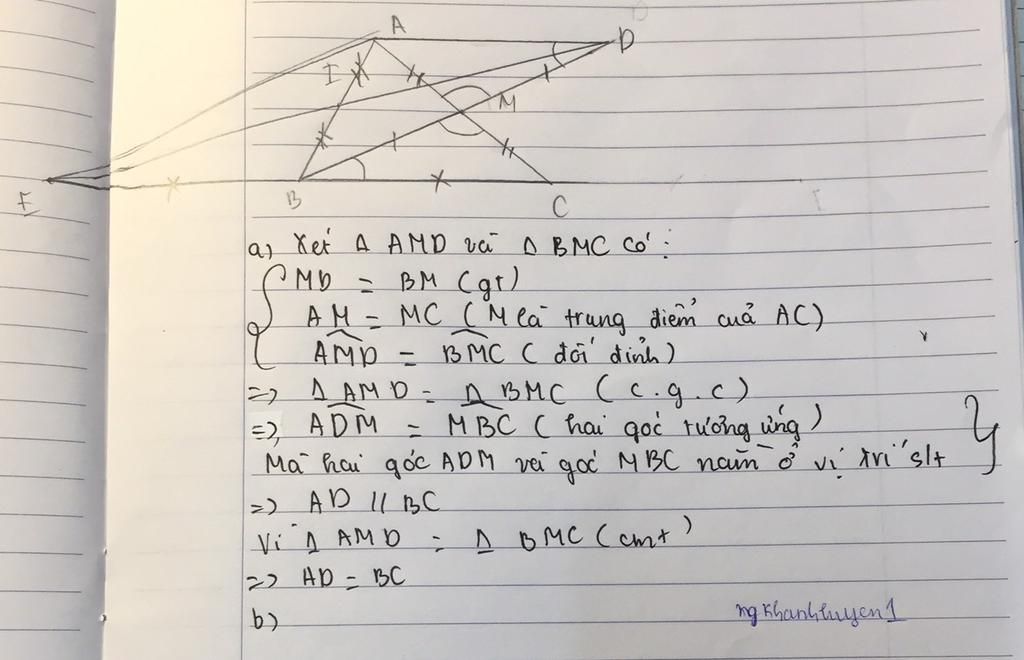 A
D
I
M
E
B
C
a, Xét Δ AMD và Δ BMC có :
MD = BM (gt)
AM = MC (M là trung điểm cuả AC)
AMD = BMC (đối đỉnh)
=> Δ AMD = Δ BMC (c.g.c)
=> ADM = MBC (hai góc tương ứng)
Mà hai góc ADM và góc MBC nằm ở vị trí slt
=> AD // BC
Vì Δ AMD = Δ BMC (cmt)
=> AD = BC
b)
ngkhanhhuyen1